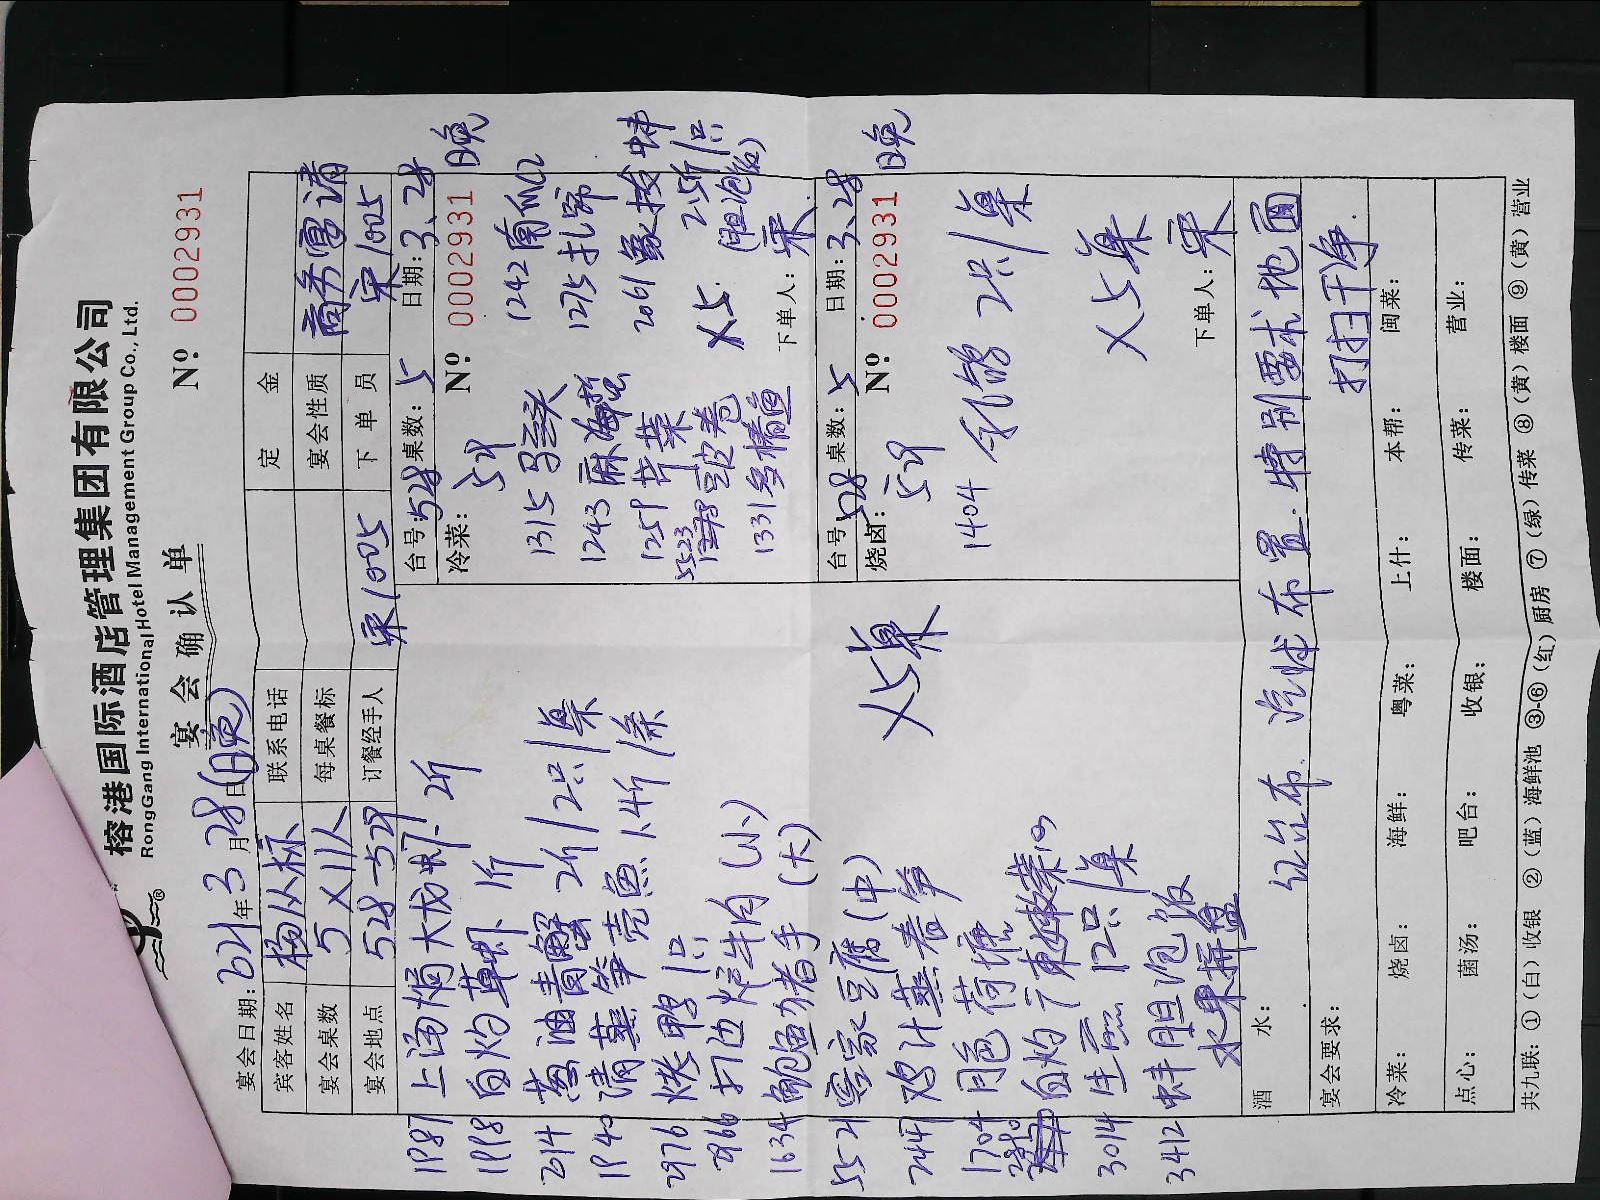 榕港国际酒店管理集团有限公司
RongGang International Hotel Management Group Co., Ltd.
宴会确认单
Nº 0002931
宴会日期: 2021年3月28日(日晚)
宾客姓名 杨从标 联系电话 定金
宴会桌数 5×11人 每桌餐标 宴会性质 商务宴请
宴会地点 528-529 订餐经手人 宋1005 下单员 宋1005
1987 上汤焗大龙虾 2斤
1998 白灼草虾 1斤
2014 葱油青蟹 2斤/2只/桌
1940 清蒸笋壳鱼 1.4斤/条
2976 烤鸭 1只
2966 牛肉(小)
1634 鲍鱼 (大)
5521 客家豆腐(中)
2447 鸡汁蒸春笋
1704 月色荷塘
白灼广东
3014 生煎 12只/桌
3412 蚌胆泡饭
水果拼盘
×5桌
台号: 528 桌数: 5 日期: 3.28 日晚
冷菜: 529 Nº 0002931
1315 1242 南瓜
1243 麻海蜇 1275 扎蹄
1259 芹菜 2061 象拔蚌
5523 豆皮卷 2.5斤/只
1331 多椿鱼 ×5.
下单人: 宋
台号 528 桌数: 5 日期: 3.28 日晚
烧卤: 529 Nº 0002931
1404 乳鸽 2只/桌
×5桌
下单人: 宋
酒水:
红台布. 汽球布置. 特别要求地面
宴会要求: 打扫干净.
冷菜: 烧卤: 海鲜: 粤菜: 上什: 本帮: 闽菜:
点心: 菌汤: 吧台: 收银: 楼面: 传菜: 营业:
共九联: ①(白)收银 ②(蓝)海鲜池 ③-⑥(红)厨房 ⑦(绿)传菜 ⑧(黄)楼面 ⑨(黄)营业